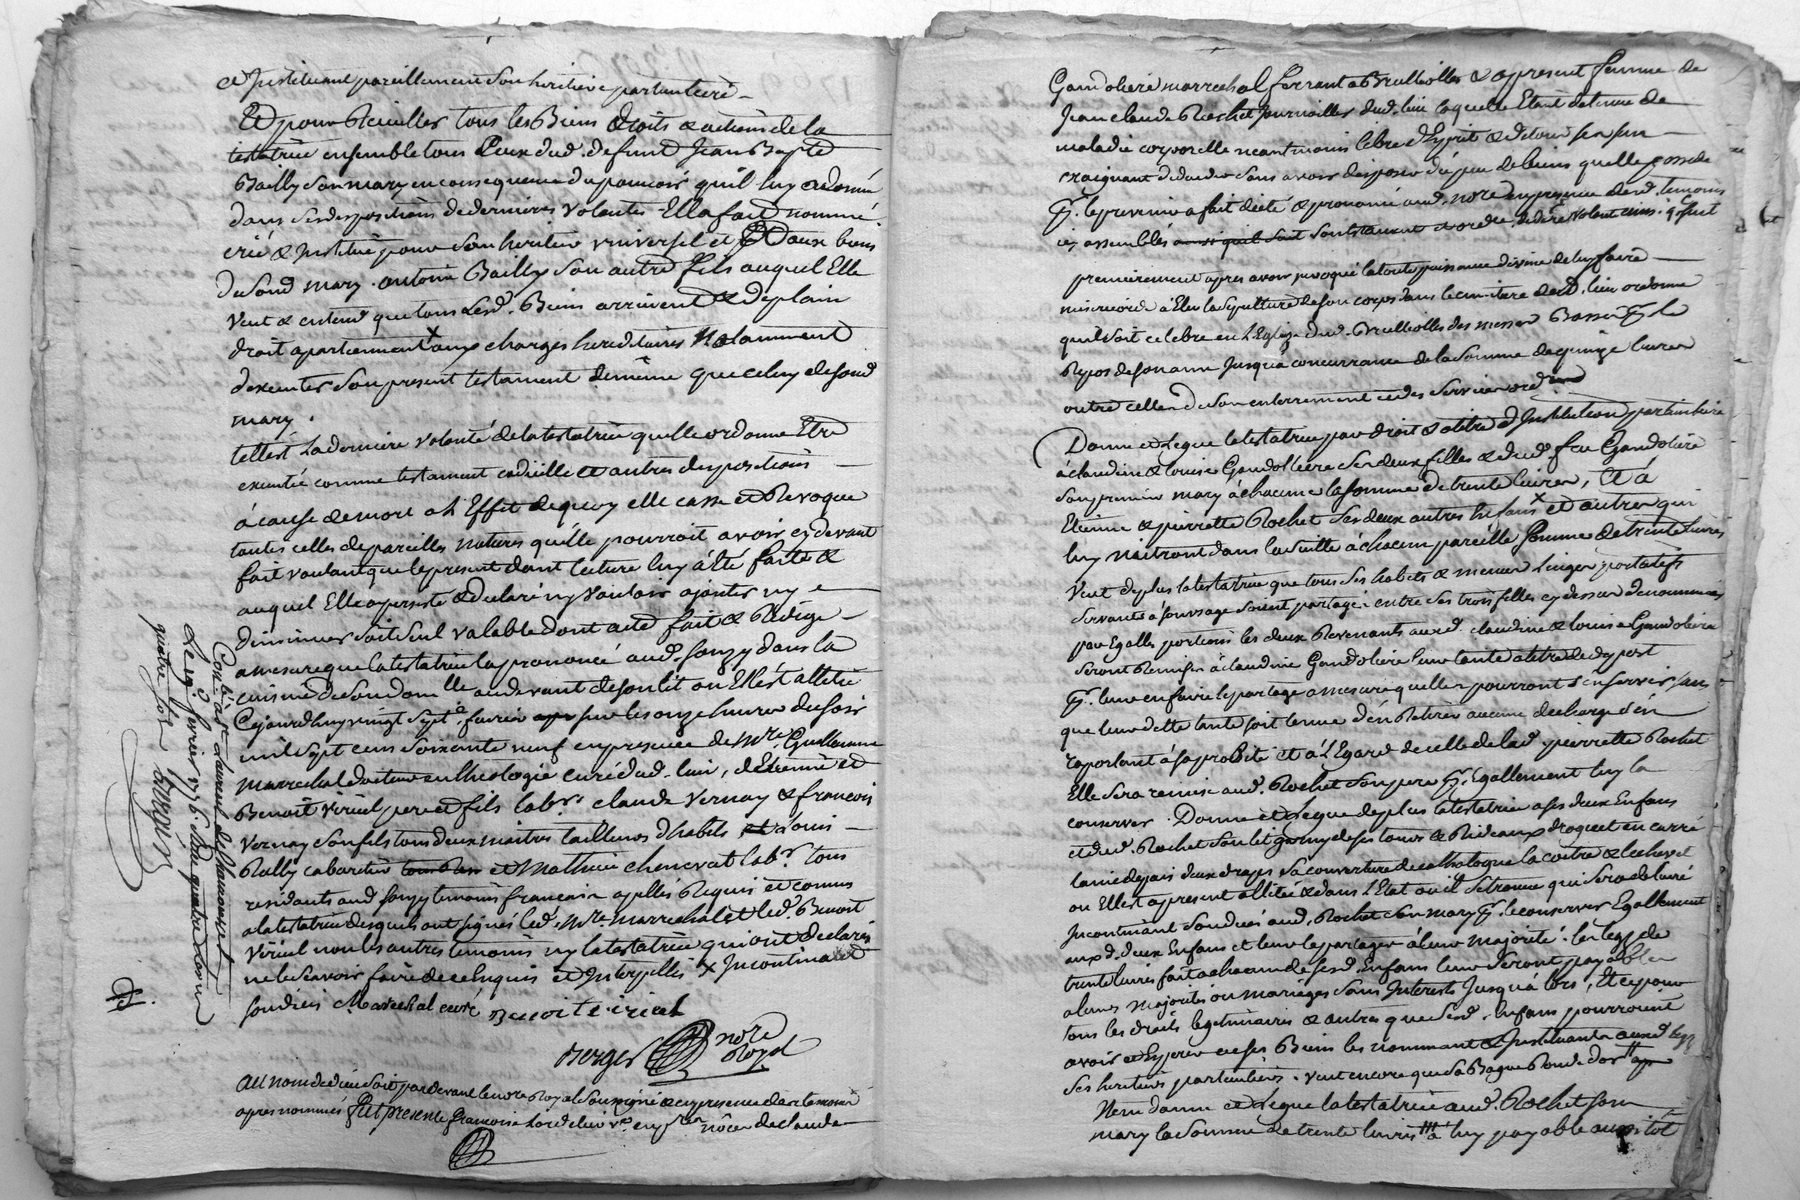 et Instituant pareillement son heritiere particuliere
Et pour Receuillir tous les Biens droits et actions de la
testatrice ensemble tous Ceux dud. defunt Jean Bapte
Bailly son mary en consequence du pouvoir qu'il luy a donné
dans ses dispositions de dernieres volontés Elle a fait nommé
crée & Institué pour son heritier universel et Ez d. biens
de sond mary. antoine Bailly son autre fils auquel Elle
Veut & entend que tous lesd. Biens arrivent & de plain
droit apartiennent aux charges hereditaires Notamment
dexecuter son present testament de même que celuy de sond
mary.
tell'est La derniere volonté de la testatrice qu'elle ordonne Etre
executée comme testament codicille et autres dispositions
à cause de mort a L'Effet de quoy elle casse et Revoque
toutes celles de pareilles natures qu'elle pourroit avoir cy devant
fait voulant que le present dont lecture luy a été faite &
auquel Elle a persisté & declaré ny vouloir ajouter ny
diminuer soit seul valable dont acte fait & Redigé
a mesure que la testatrice l'a prononcé aud. Longy dans la
cuisine de son domlle au devant de son lit ou Ell'est allitée
Cejourdhuy vingt sept e. fevrier sur les onze heures du soir
mil sept cens soixante neuf en presence de Mre. Guillaume
Marrechal docteur en theologie curé dud. lieu, d'Etienne et
Benoit Viricel pere et fils labrs. claude Vernay & francois
Vernay son fils tous deux maitres tailleurs d'habits Louis
Rolly cabaretier et Mathieu chenevat labr. tous
residants aud Longy temoins francais apellés Requis et connus
a la testatrice desquels ont signés led. Mre. Marrechal et led. Benoit
Viricel non les autres temoins ny la testatrice qui ont declarés
ne le savoir faire de ce Enquis et Interpellés x Incontinant
sondiers Marechal curé Benoit Viricel
Berger nore Royal
Au nom de dieu soit pardevant le nore Royal soussigné & en presence des temoins
apres nommés fut presente françoise veve. en pres. nôces de claude
Conlé. a st Laurent de Chamousset
Le 19e. fevrier 1776 Reçu quatre livres
quatre sols Berger
Gandoliere marrechal ferrant a Brullioles & apresent femme de
Jean claude Rochet journaillier dud. lieu laquelle Etant detenue de
maladie corporelle neantmoins libre d'Esprit & de tous ses sens
craignant de deceder sans avoir disposé du peu de biens qu'elle possede
pr. le prevenir a fait dicté & prononcé aud. nore en presence desd. temoins
icy assemblés son testament et ordre. de dere. volonté ainsi q. suit
premierement apres avoir invoqué la toute puissance divine de luy faire
misericorde à Elu la sepulture de son corps dans le cimitiere dud. lieu ordonne
qu'il soit celebré en L'Eglise dud. Brullioles des messes Basses pr. le
Repos de son ame Jusqu'a concurrance de la somme de quinze livres
outre celles de son enterrement et des services ordres
Donne et Legue la testatrice par droit & à titre d'Institution particuliere
à claudine & louise Gandoliere ses deux filles & dud. feu Gandoliere
son premier mary à chacune la somme de trente livres, Et à
Etienne & pierrette Rochet ses deux autres Enfans x et autres qui
luy naitront dans la suitte à chacun pareille somme de trente livres
Veut de plus la testatrice que tous ses habits & menus linges portatifs
servants à son usage soient partagé entre ses trois filles cy dessus denommées
par Egalles portions les deux Revenants auxd. claudine & louise Gandoliere
seront Remises à claudine Gandoliere leur tante à titre de depost
pr. leur en faire le partage a mesure quelles pourront s'en servir sans
que leur dette tante soit tenue d'en Retirer aucune decharge s'en
raportant à sa probité et à L'Egard de celle de lad. pierrette Rochet
Elle sera remise aud. Rochet son pere pr. Egallement luy la
conserver. Donne et Legue de plus la testatrice a ses deux Enfans
et dud. Rochet son lit garny de ses tours & Rideaux droguet en carré
ou Ell'est apresent allitée & dans L'Etat ou il se trouve qui sera delivré
Incontinant son decés aud. Rochet son mary pr. le conserver Egallement
auxd. deux Enfans et leur le partager à leur majorité: les legs de
trente livres fait a chacun de sesd. Enfans leur seront payables
a leurs majorités ou mariages sans Interests Jusqu'à lors, Et ce pour
tous les droits legitimaires & autres que sesd. Enfans pourroient
avoir et Esperer en ses Biens les nommant & Instituant auxd. legs
ses heritiers particuliers. Veut encore que sa Bague Ronde d'or
Item donne et Legue la testatrice aud. Rochet son
mary la somme de trente livres à luy payable aussitot